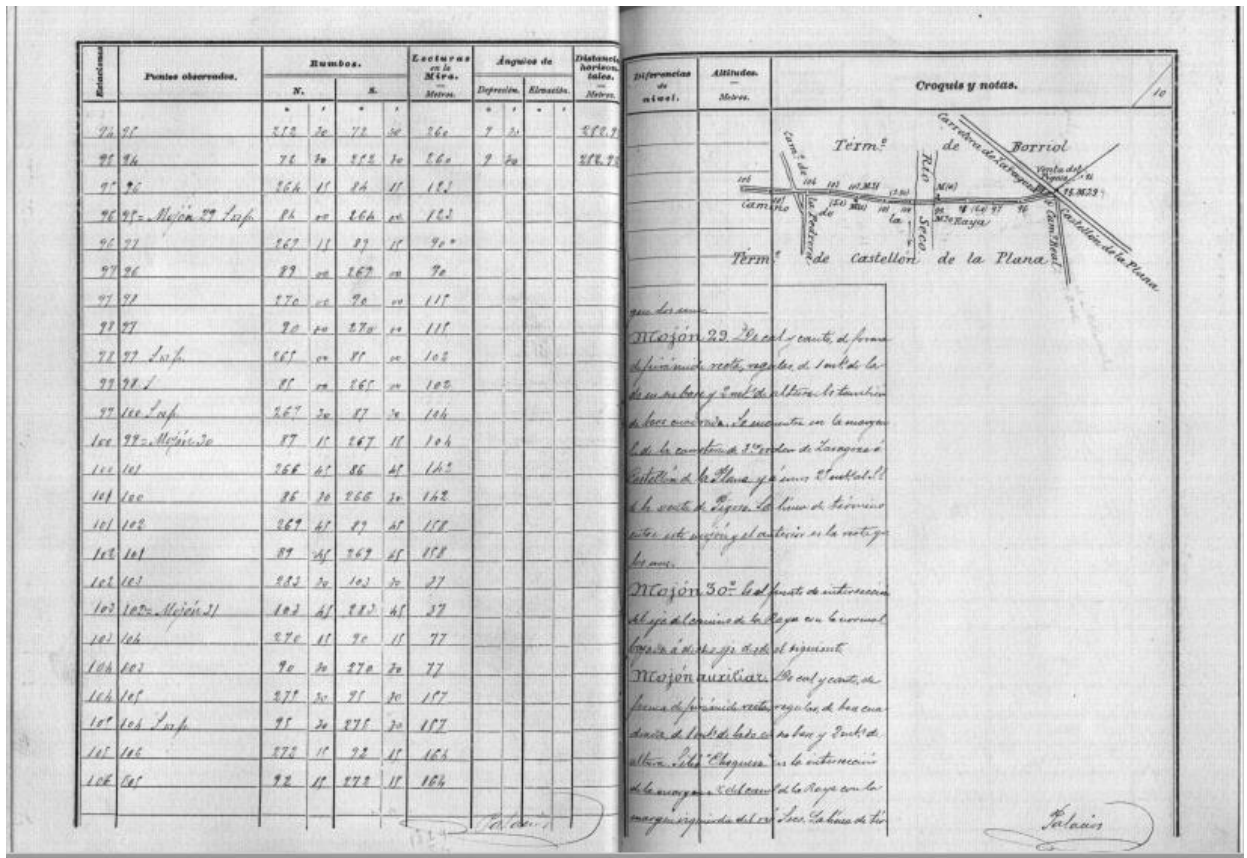 Estaciones
Puntos observados.
Rumbos.
N.
S.
Lecturas en la Mira.
Metros.
Ángulos de
Depresión.
Elevación.
Distancias horizontales.
Metros.
94 95 252 30 72 30 260 9 20
95 94 72 30 252 30 260 9 20
95 96 264 15 84 15 123
96 95 = Mojón 29 84 00 264 00 123
96 97 267 15 87 15 90
97 96 87 00 267 00 90
97 98 270 00 90 00 115
98 97 90 00 270 00 115
98 99 265 00 85 00 102
99 98 85 00 265 00 102
99 100 267 30 87 30 104
100 99 = Mojón 30 87 15 267 15 104
100 101 266 45 86 45 142
101 100 86 30 266 30 142
101 102 269 45 89 45 158
102 101 89 45 269 45 158
102 103 283 30 103 30 37
103 102 = Mojón 31 103 45 283 45 37
103 104 270 15 90 15 77
104 103 90 30 270 30 77
104 105 275 30 95 30 157
105 104 95 30 275 30 157
105 106 272 15 92 15 164
106 105 92 15 272 15 164
Palacios
Diferencias de nivel.
Altitudes.
Metros.
Croquis y notas.
10
Térm.º de Borriol
Carretera de Zaragoza á Castellón de la Plana
Cam.º de la Pedrera
Río Seco
Venta del
Camino de la Raya
Cam.º Real
Térm.º de Castellón de la Plana
Mojón 29. De cal y canto, de forma
de pirámide recta, regular, de 1 mt. de la-
do en su base y 2 mt. de altura
de base cuadrada. Se encuentra en la margen
de la carretera de 3.er orden de Zaragoza á
Castellón de la Plana y á unos
de la venta de. La línea de término
entre este mojón y el anterior es la recta que
los une.
Mojón 30.º Es el punto de intersección
del eje del camino de la Raya con la normal
bajada á dicho eje desde el siguiente
Mojón auxiliar. De cal y canto, de
forma de pirámide recta, regular, de base cua-
drada, de 1 mt. de lado en su base y 2 mt. de
altura. Sitio en la intersección
de la margen del cam.º de la Raya con la
margen izquierda del río Seco. La línea de tér-
Palacios